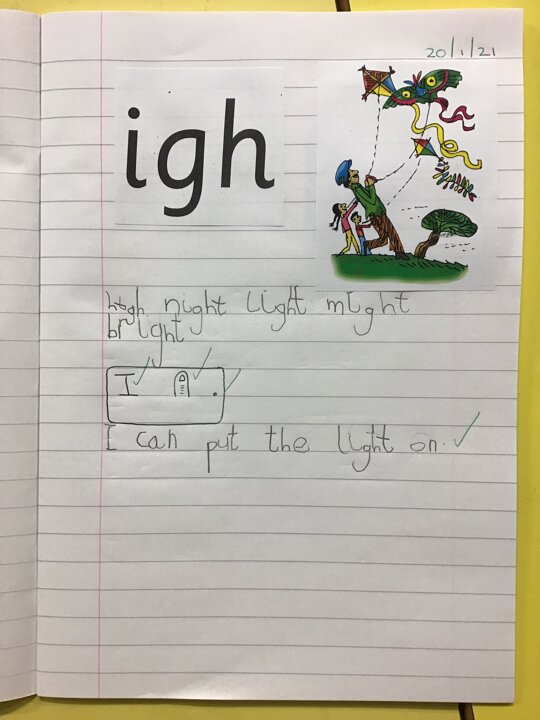 20/1/21
igh
high night light might
bright
I .
I can put the light on.